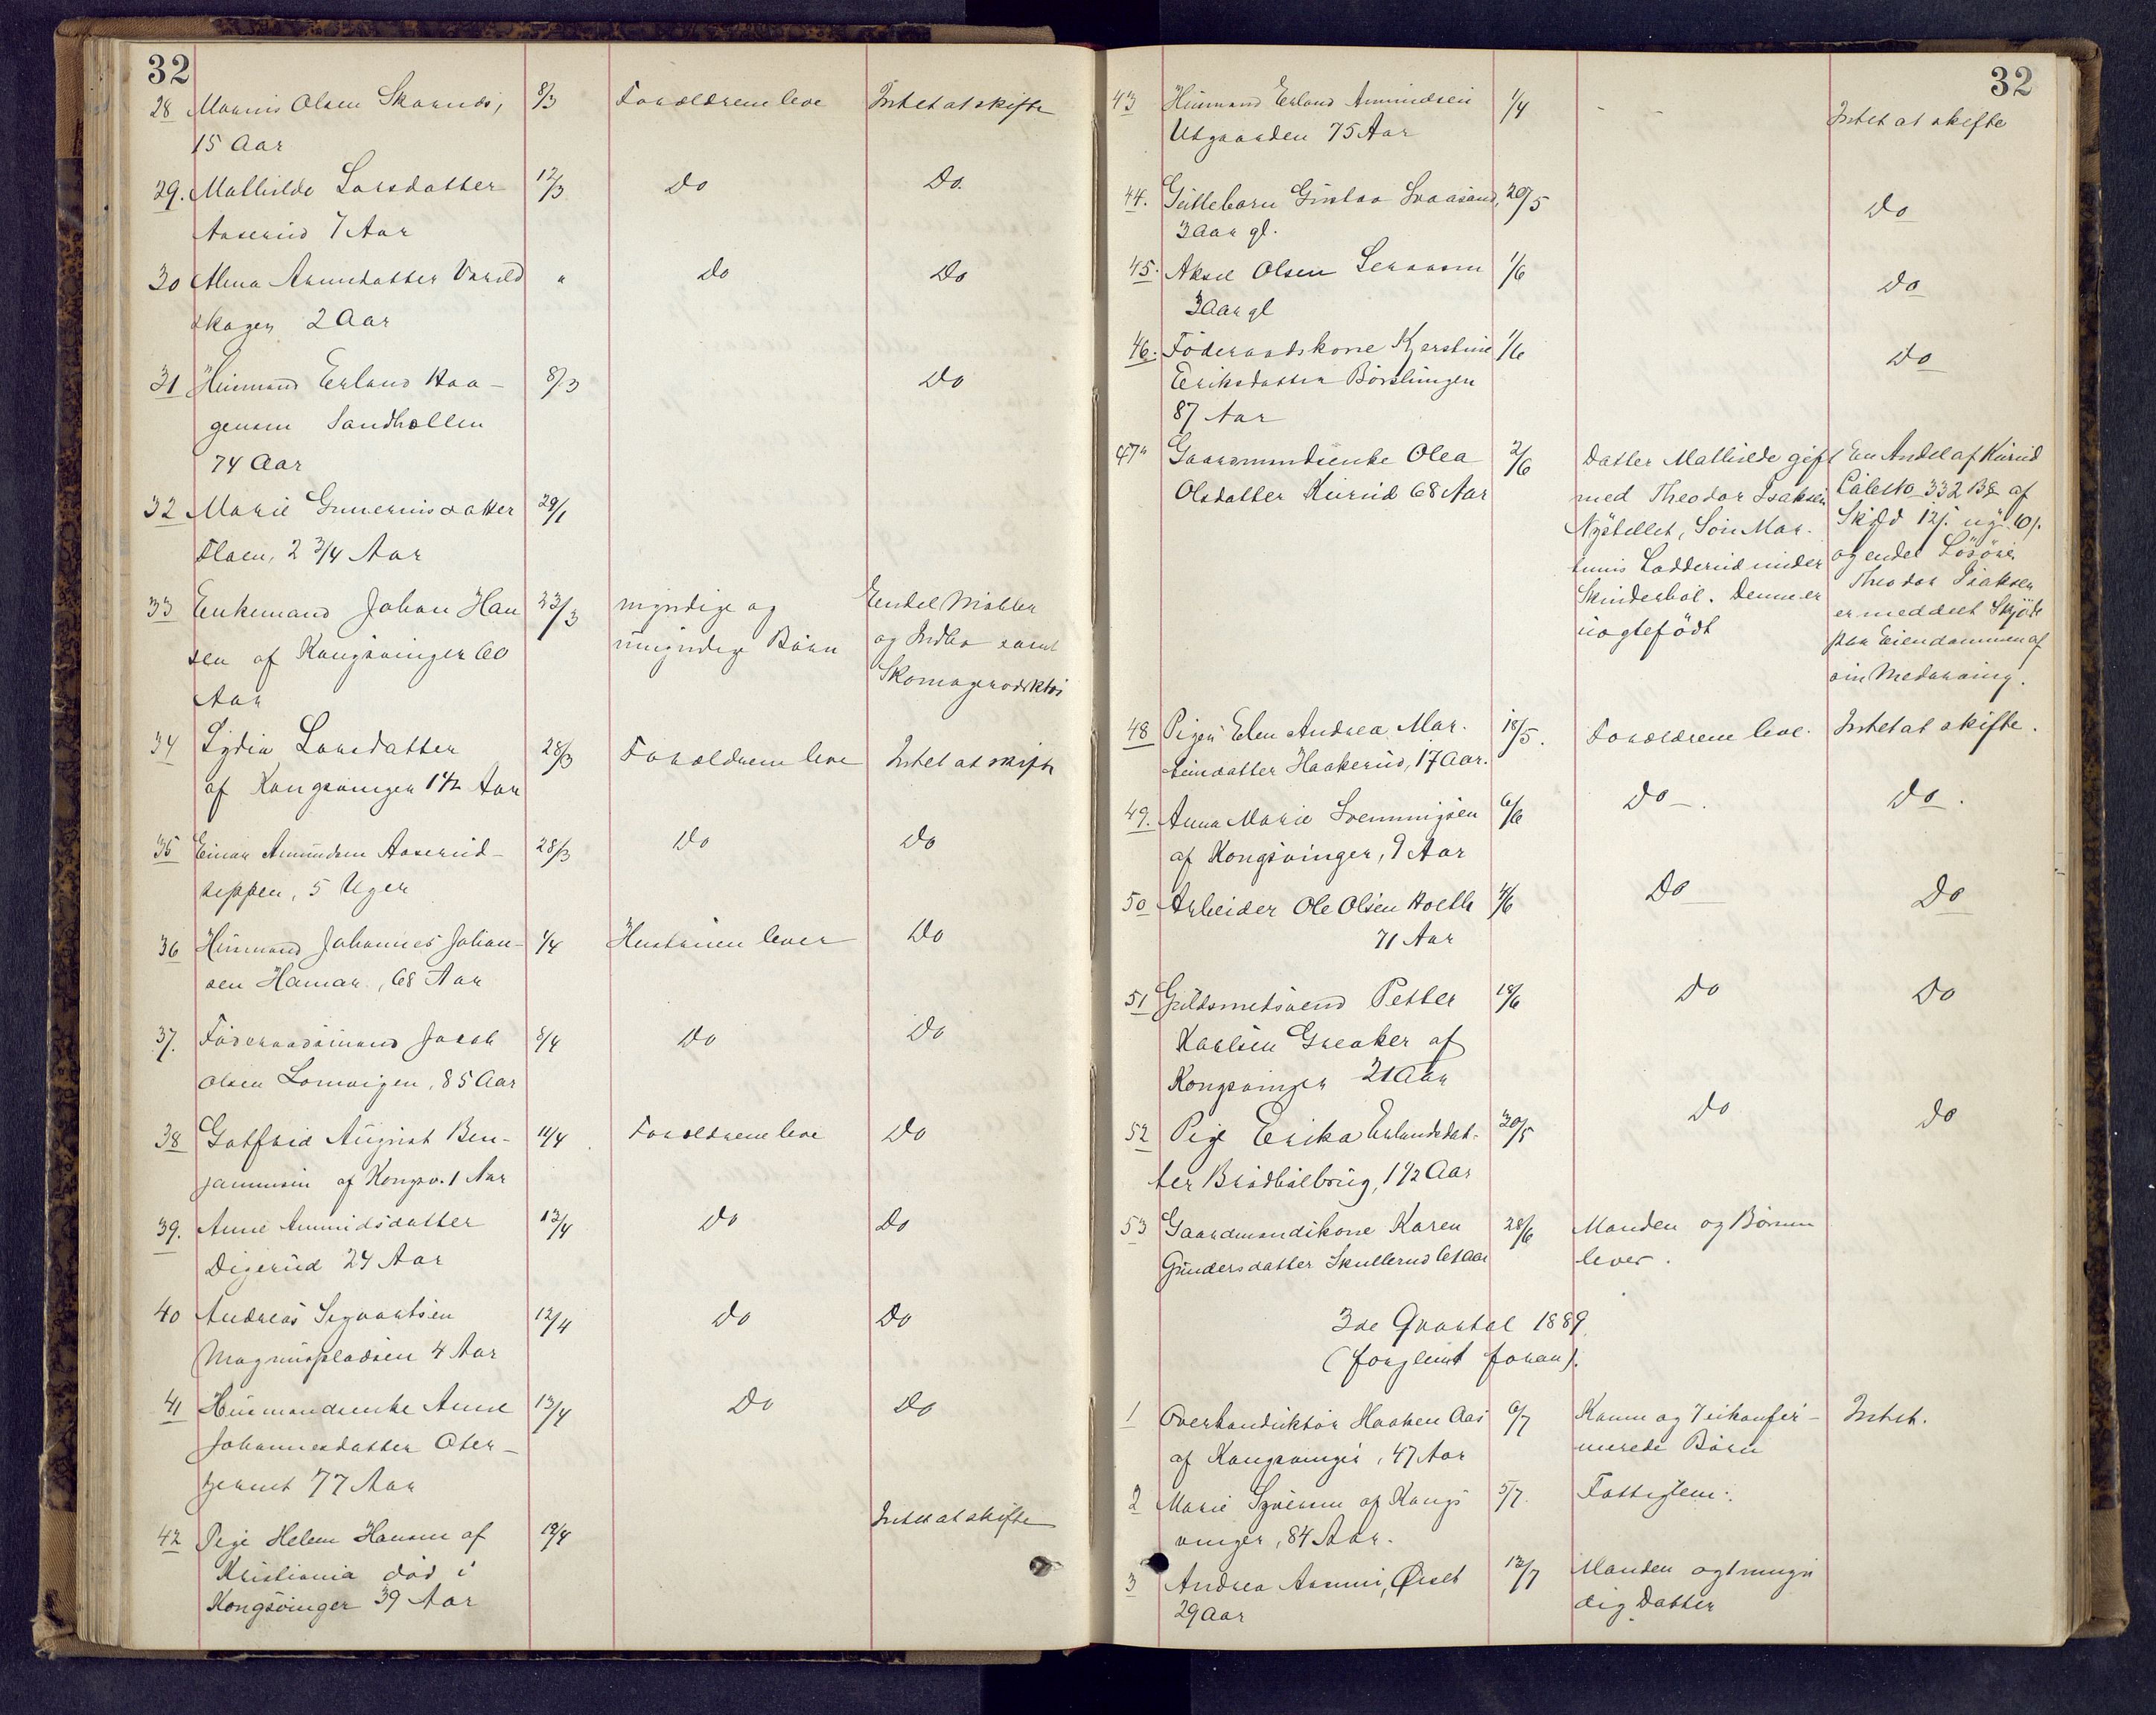 32
28 Olsen 8/3 Forældrene leve Intet at skifte
15 Aar
29. Mathilde Larsdatter 12/3 Do Do.
Aaserud 7 Aar
30 Alma Do Do
skogen 2 Aar
31 Husmand Erland Haa- 8/3 Do
gensen Sandhollen
74 Aar
32 Marie Gunerius datter 29/1
2 3/4 Aar
33 Enkemand Johan Han 23/3 myndige og Endel Møbler
sen af Kongsvinger 60 umyndige Børn og Indbo samt
Aar Skomagerverktøi
34 Lydia Larsdatter 28/3 Forældrene leve Intet at skifte
af Kongsvinger 1 1/2 Aar
35 Einar Amundsen Aaserud- 28/3 Do Do
teppen, 5 Uger
36 Husmand Johannes Johan- 1/4 Hustruen lever Do
sen Hamar, 68 Aar
37. Føderaadsmand Jacob 8/4 Do Do
Olsen Lomvigen, 85 Aar
38 Gotfrid August Ben- 11/4 Forældrene leve Do
jaminsen af Kongsv. 1 Aar
39. Anne Amundsdatter 12/4 Do Do
Digerud 24 Aar
40 Andreas Sigvartsen 12/4 Do Do
Magnuspladsen 4 Aar
41 Husmandsenke Anne 13/4 Do Do
Johannesdatter Oter-
tjernet 77 Aar
42 Pige Helene Hansen af 19/4 Intet at skifte
Kristiania død i
Kongsvinger 39 Aar
32
43 Husmand Erland Amundsen 1/4 - - Intet at skifte
Utgaarden 75 Aar
44. Gutteharn Gustav 20/5 Do
3 Aar gl.
45. Aksel Olsen 1/6 Do
3 Aar gl
46. Føderaadskone Kjerstine 1/6 Do
Eriksdatter
87 Aar
47. Gaardmandsenke Olea 2/6 Datter Mathilde gift En Andel af Kurud
Olsdatter Kurud 68 Aar med Theodor Isaksen 332 af
Søn Mar- Skyld
tinius Lodderud under og endel Løsøre
Skinderhol. Denne er Theodor Isaksen
uægtefødt er meddelt Skjøde
paa Eiendommen af
sin Medarving.
48 Pigen Elen Andrea Mar- 18/5. Forældrene leve. Intet at skifte.
tinsdatter Haakerud, 17 Aar.
49. Anna Marie Svenningsen 6/6 Do. Do.
af Kongsvinger, 9 Aar
50 Arbeider Ole Olsen Holth 4/6 Do Do
71 Aar
51 Guldsmedsvend Petter 19/6 Do Do
Karlsen Greaker af
Kongsvinger 21 Aar
52 Pige Erika Erlandsdat- 30/5 Do Do
ter 1 1/2 Aar
53 Gaardmandskone Karen 28/6 Manden og Børnene
Gundersdatter Skullerud 61 Aar lever.
3de Qvartal 1889.
(forglemt foran).
1 Overkonduktør Haaken Aas 6/7 Kone og 7 ukonfir- Intet.
af Kongsvinger, 47 Aar merede Børn
2 Marie af Kongs 5/7. Fattiglem.
vinger, 84 Aar.
3 Andrea 12/7 Manden og 1 umyn
29 Aar dig Datter